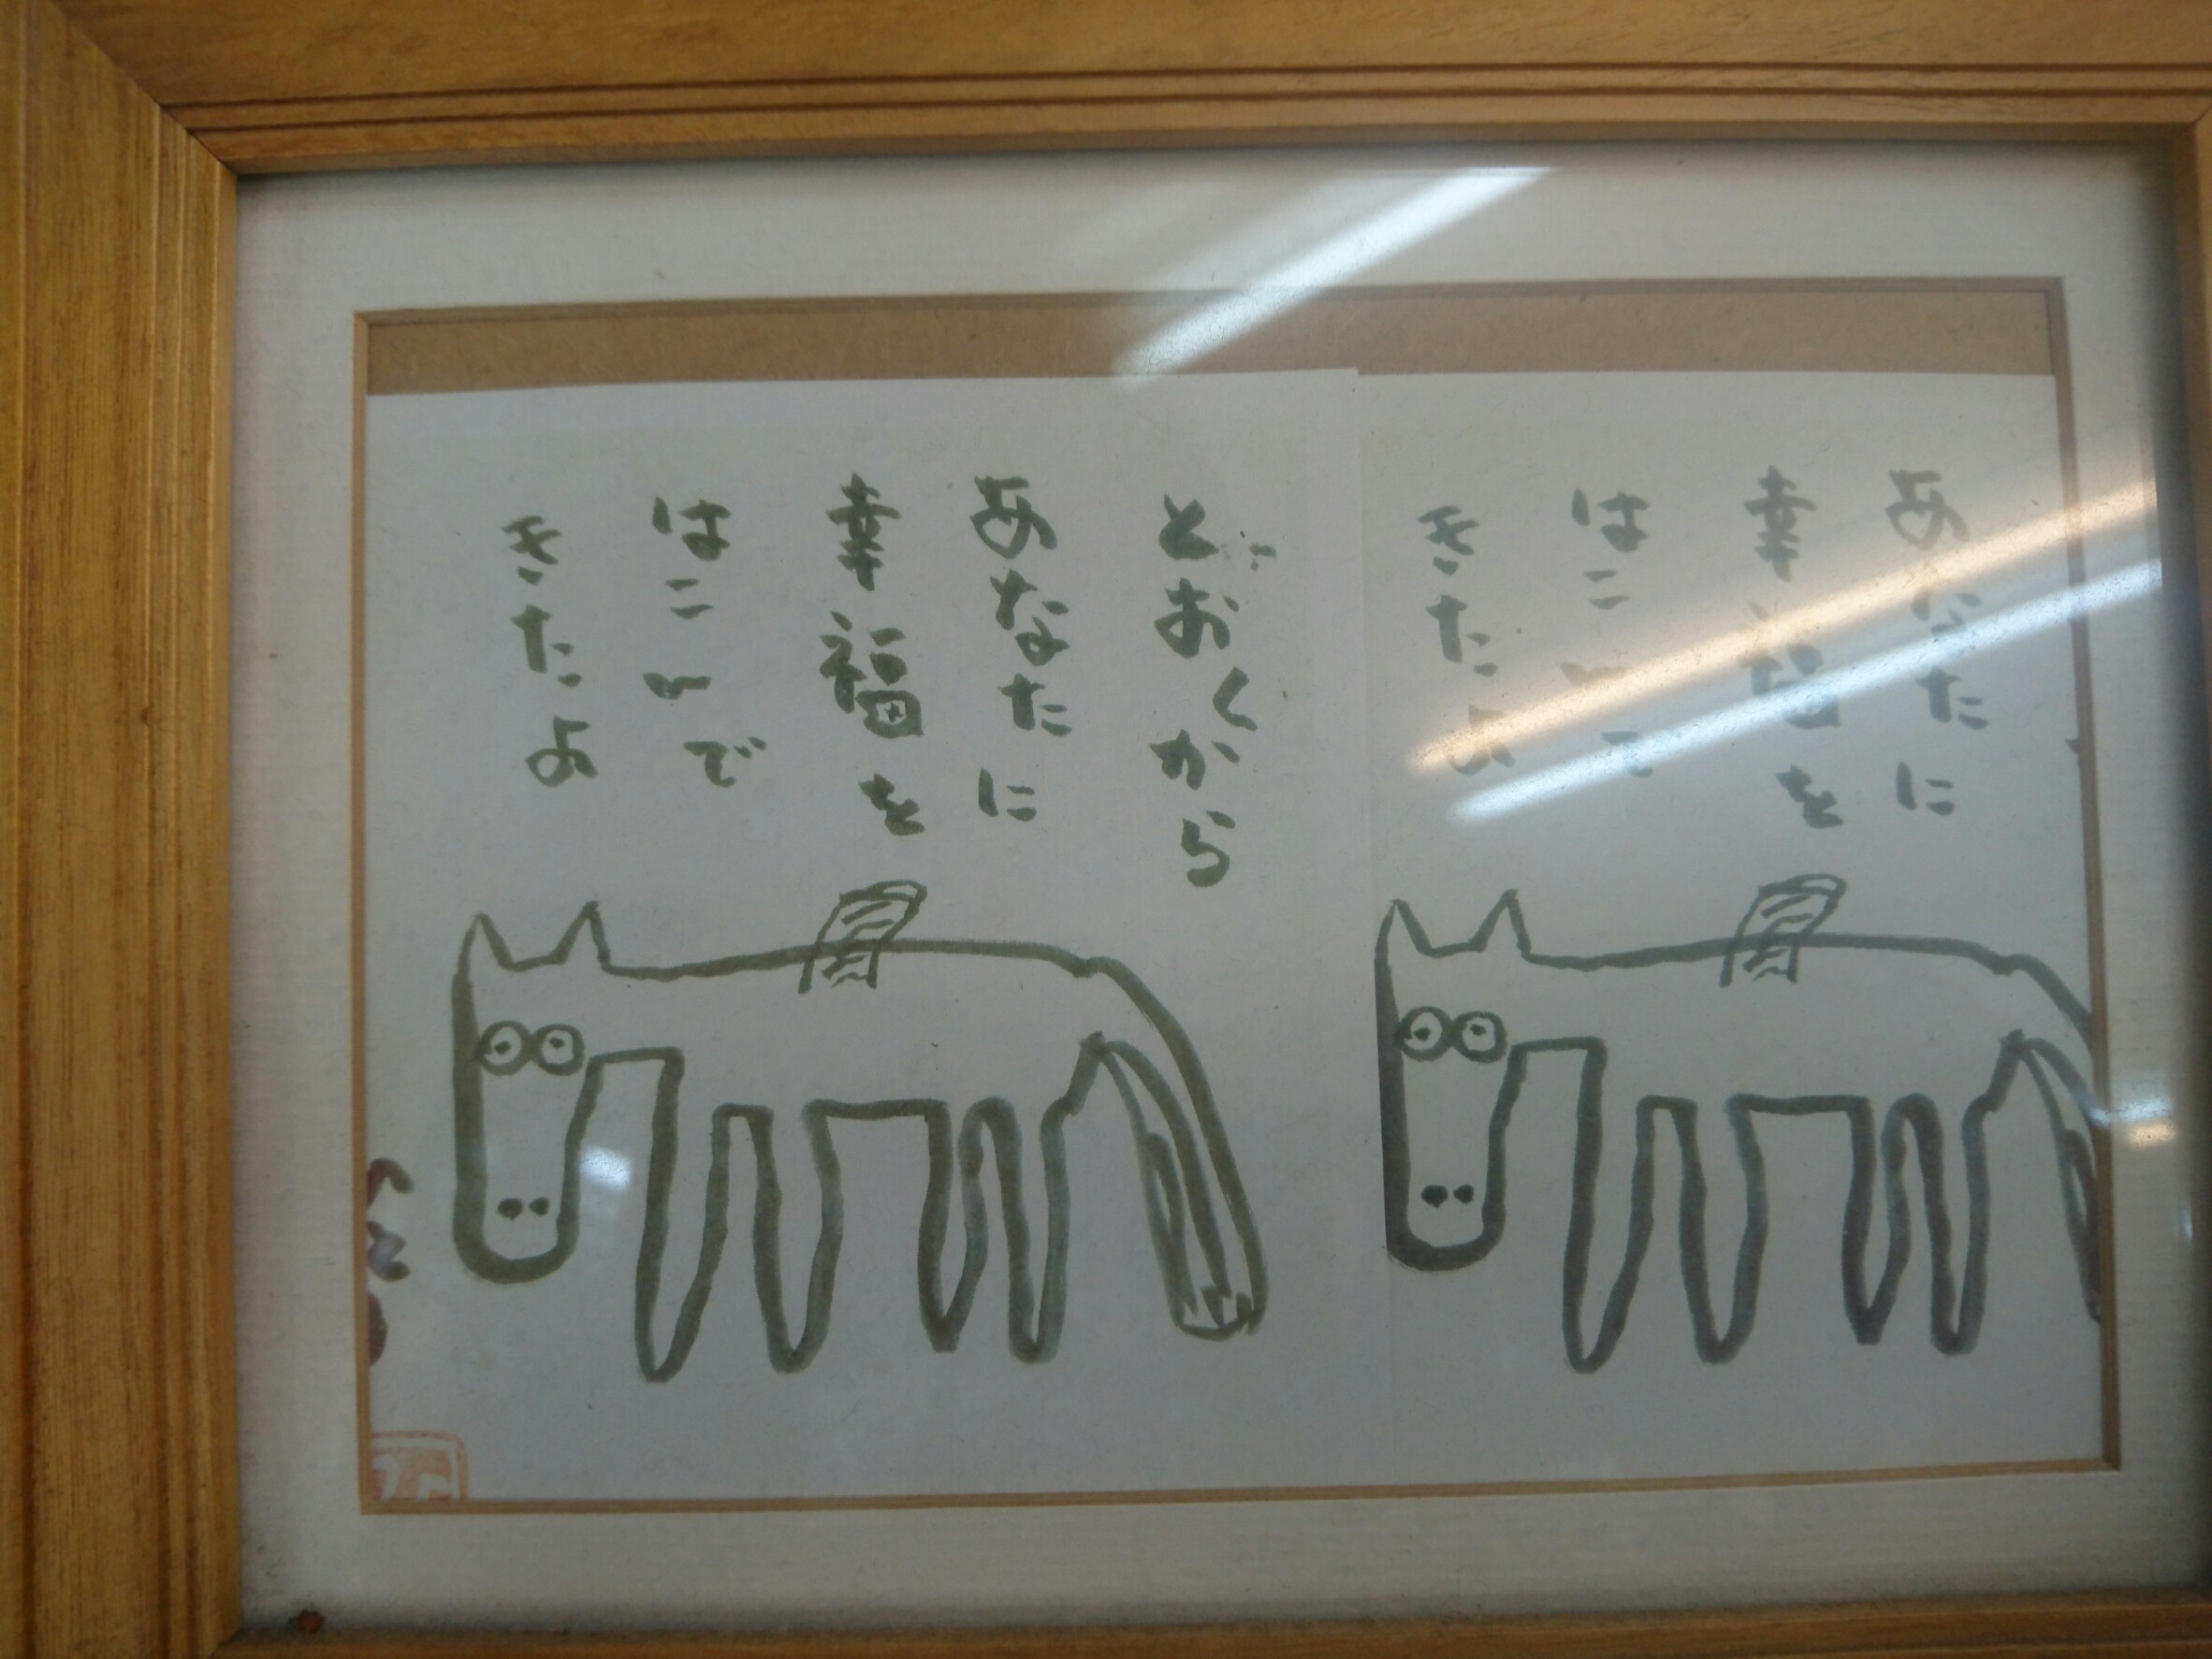 あなたに
幸福を
はこんで
きたよ
とおくから
あなたに
幸福を
はこんで
きたよ